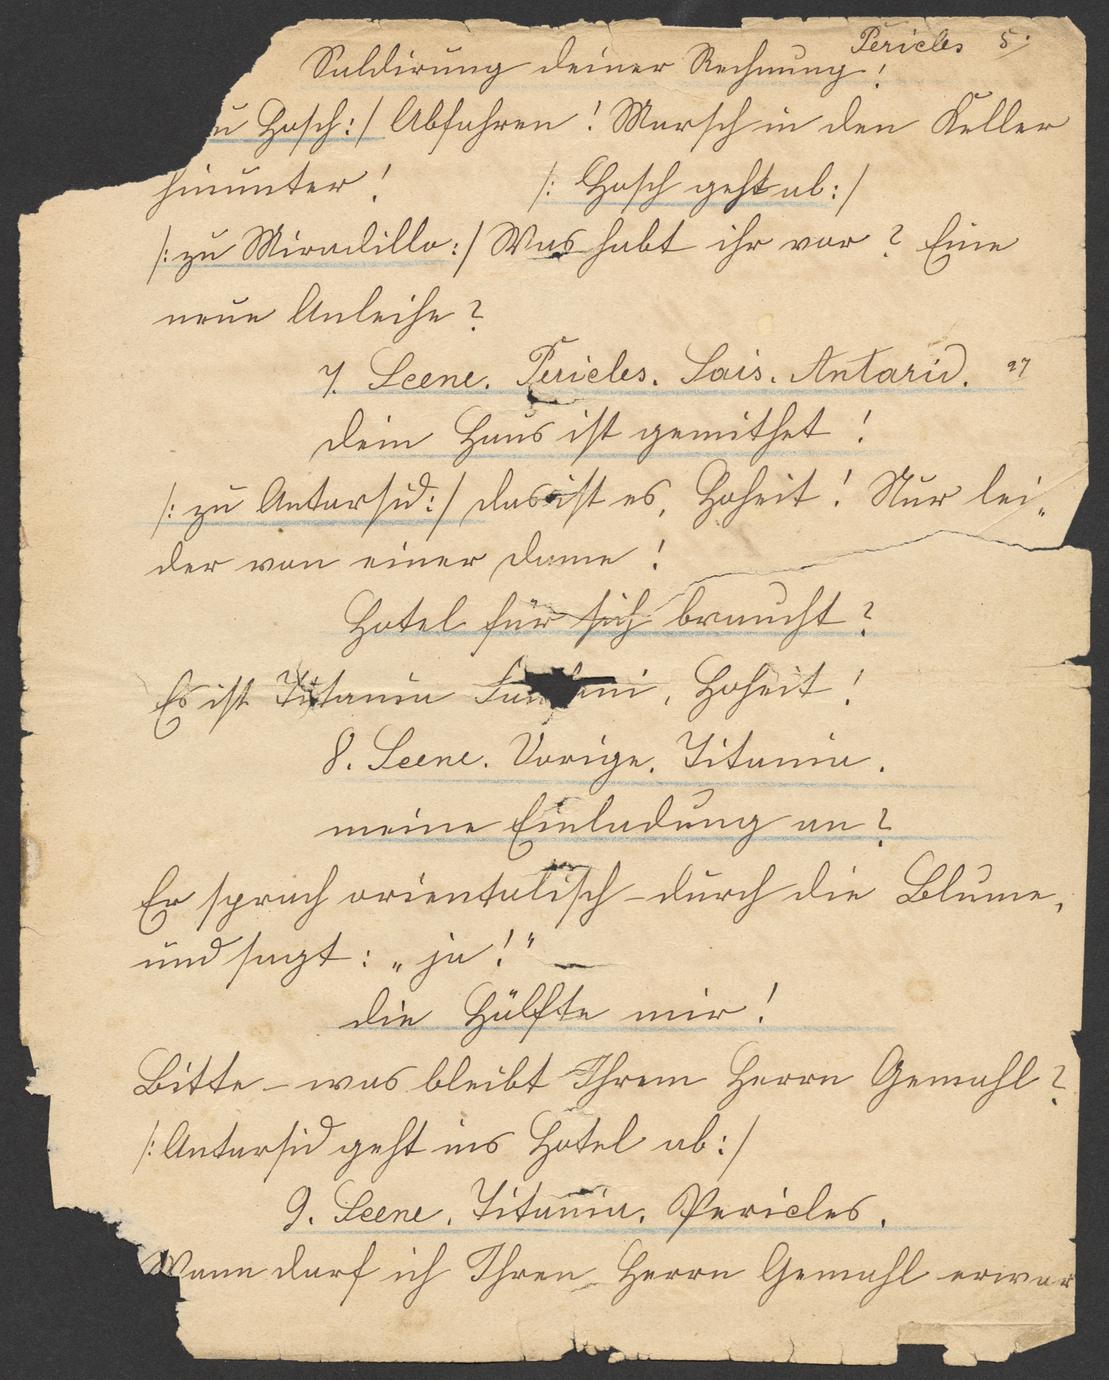 Pericles 5.
Saldirung deiner Rechnung!
zu Hosch:/ Abfahren! Marsch in den Keller
hinunter! /: Hosch geht ab:/
/: zu Miradillo:/ Was habt ihr vor? Eine
neue Anleihe?
7. Scene. Pericles. Lais. Antarsid. 27
Dein Haus ist gemithet!
/: zu Antarsid:/ Das ist es, Hoheit! Nur lei„
der von einer Dame!
Hotel für sich braucht?
Es ist Titania Hoheit!
8. Scene. Vorige. Titania.
meine Einladung an?
Er sprach orientalisch - durch die Blume,
und sagt: „ja!"
die Hälfte mir!
Bitte - was bleibt Ihrem Herrn Gemahl?
/: Antarsid geht ins Hotel ab:/
9. Scene. Titania. Pericles.
Wann darf ich Ihren Herrn Gemahl erwar